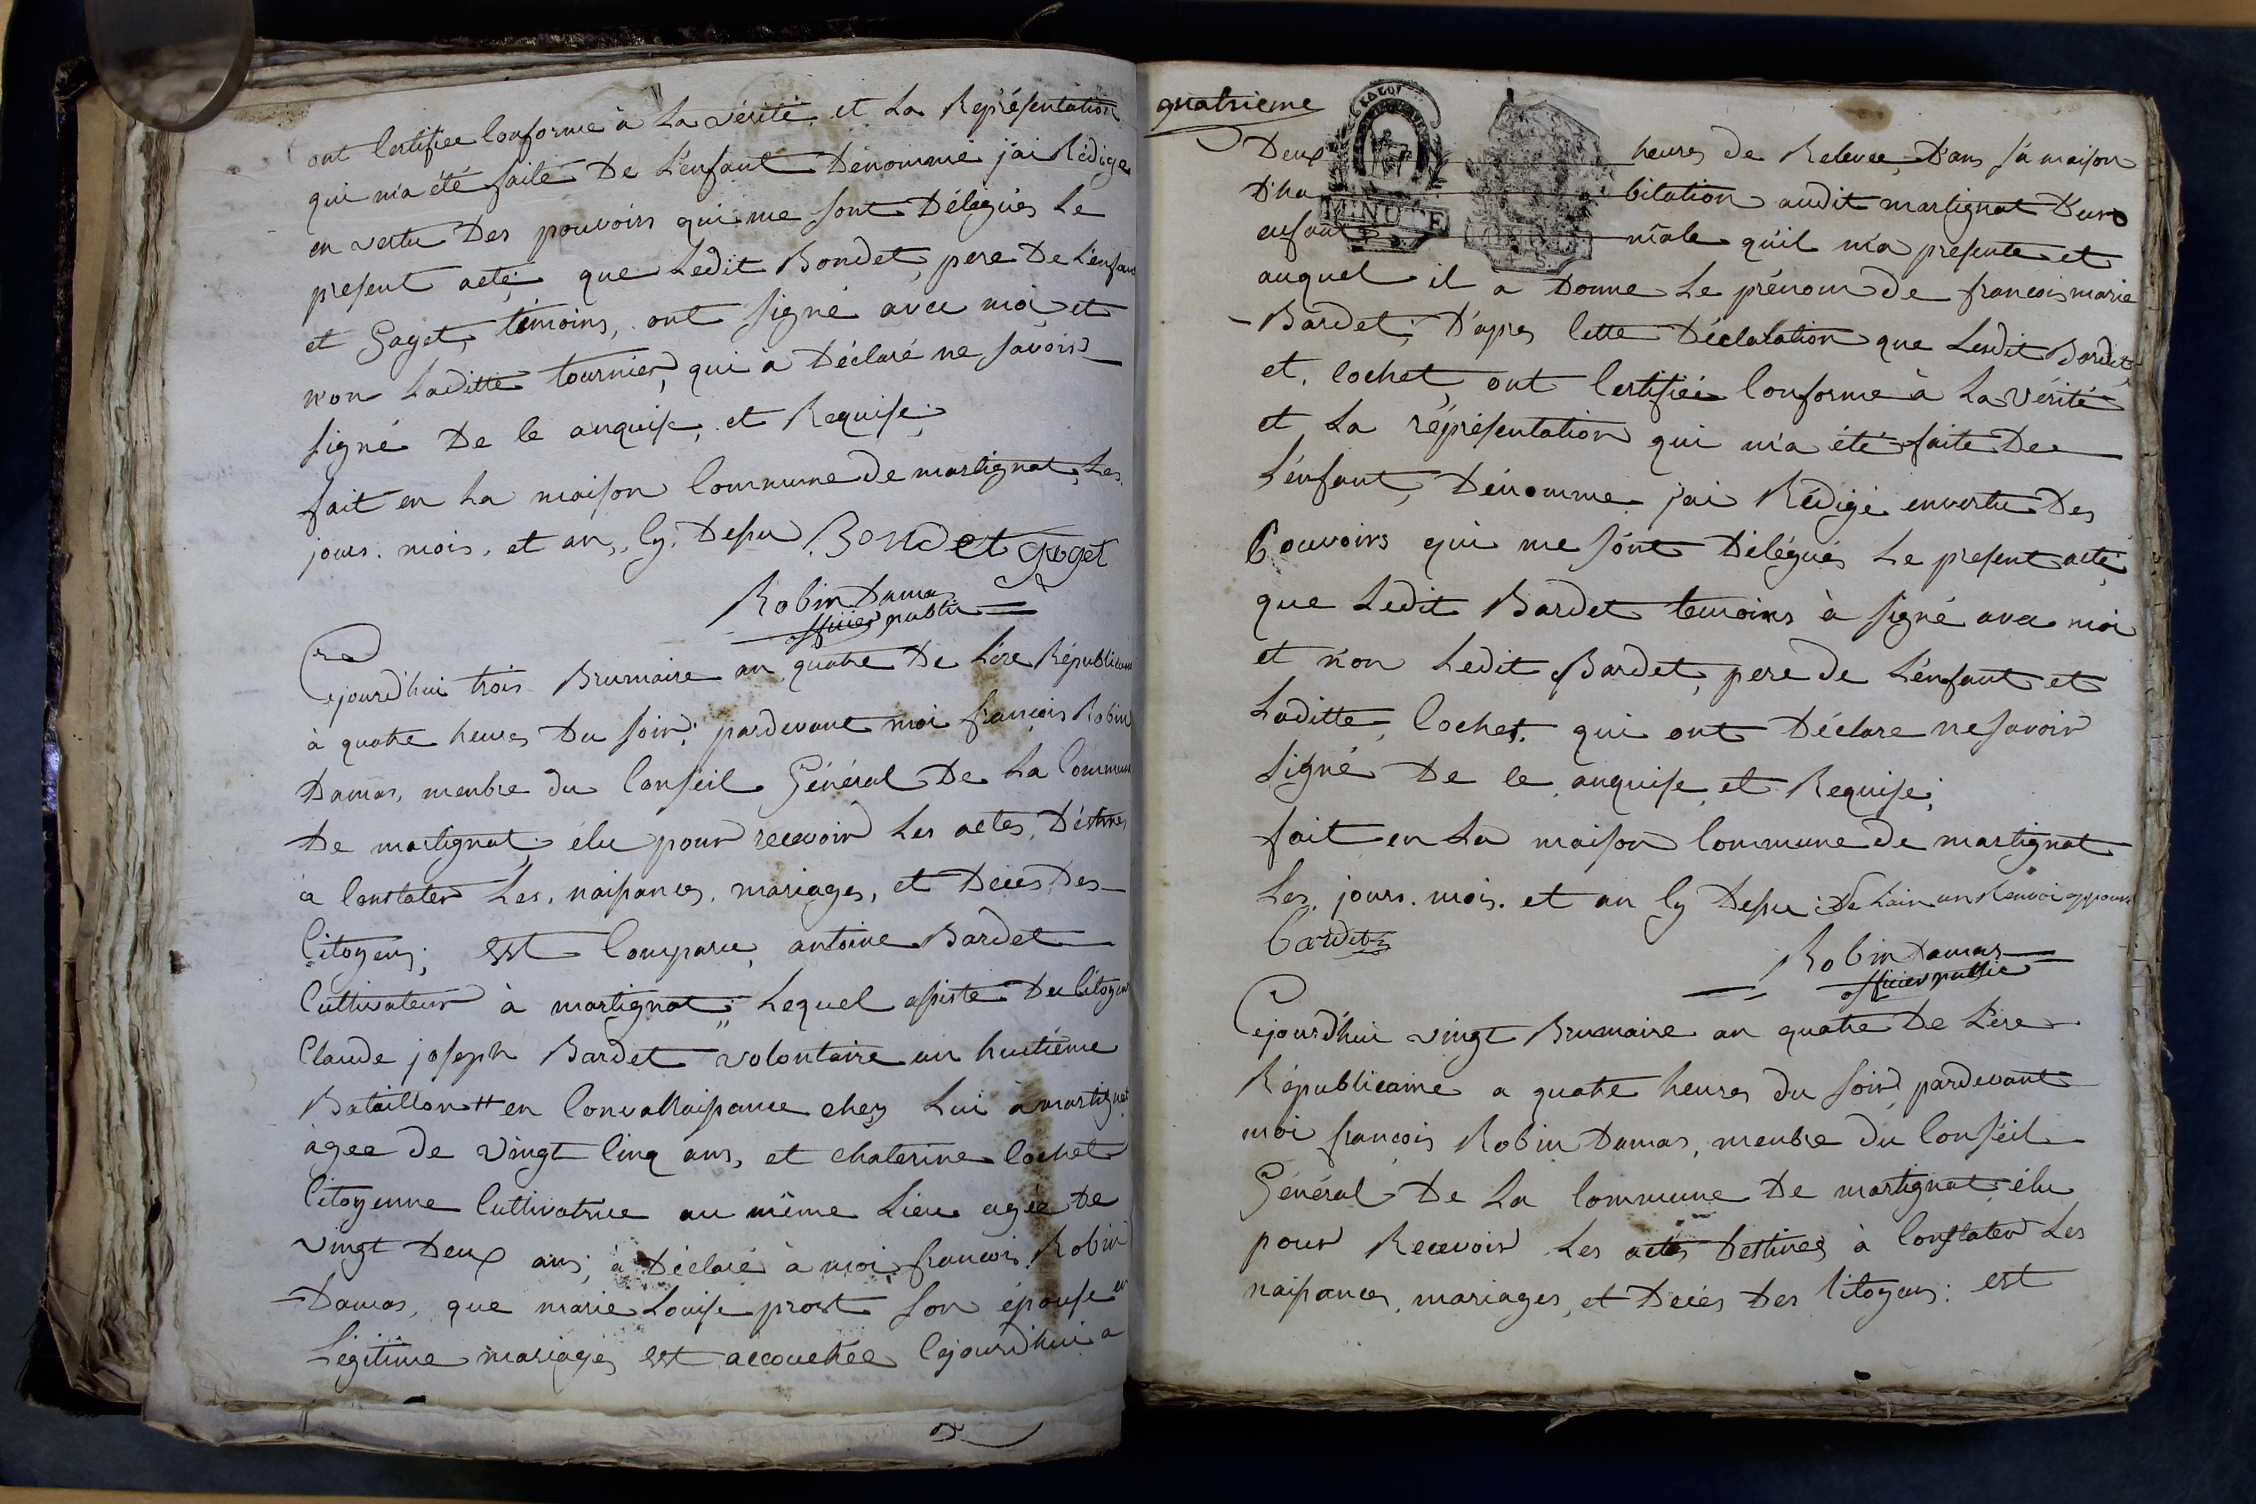 ont Certifiee Conforme à La vérité et La Représentation
qui m'a été faite De L'enfant Dénommé j'ai Rédigé
en vertu Des pouvoirs qui me sont Délégués Le
présent acte; que Ledit Bondet, pere De L'enfant
et Goget, témoins, ont signé avec moi, et
n'on Laditte Tournier, qui a Déclaré ne savoir
signé De le anquise, et Requise;
fait en La maison Commune de martignat, Les
jours. mois, et an, Cy. Dessu Bondet Goget
Robin Damas
officier public
Cejourd'hui trois Brumaire an quatre De L'ère Républicaine
à quatre heures Du soir; pardevant moi françois Robin
Damas, membre du Conseil Général De La Commune
De martignat; élu pour recevoir Les actes, Déstines
a Constater Les, naissances, mariages, et Déces, Des
Citoyens; est Comparu, antoine Bardet
Cultivateur à martignat; Lequel assisté Du Citoyen
Claude joseph Bardet volontaire au huitième
Bataillon # en Convallaissance chez Lui à martignat
agee de vingt Cinq ans, et chaterine Cochet
Citoyenne Cultivatrice au même Lieu agée De
vingt Deux ans; à Déclaré à moi françois Robin
Damas, que marie Louise prost son épouse en
Légitime mariage, est accouchée Cejourd'hui a
quatrieme
MINUTE
Deux heures de Relevee, Dans sa maison
D'habitation audit martignat D'un
enfant mâle qu'il m'a présenté et
auquel il a Donne Le prénom de francois marie
Bardet; D'apres Cette Déclaration que Lesdit Bardet,
et, Cochet, ont Certifiée Conforme à La Vérité
et La réprésentation qui m'a été faite De
L'enfant, Dénomme j'ai Rédigé envertu Des
Pouvoirs qui me sont Délégués Le présent acte;
que Ledit Bardet temoins à signé avec moi
et n'on Ledit Bardet, pere de L'enfant et
Laditte, Cochet. qui ont Déclare ne savoir
signé De le anquise, et Requise;
fait en La maison Commune de martignat
Les, jours. mois. et an Cy Desu
Bardet
Robin Damas
officier public
Cejourd'hui vingt Brumaire an quatre De L'ere
Républicaine a quatre heures du soir, pardevant
moi françois Robin Damas, membre du Conséil
Général De La Commune De martignat, élu
pour Recevoir Les actes Destines à Constater Les
naissances, mariages, et Déces Des Citoyens: est